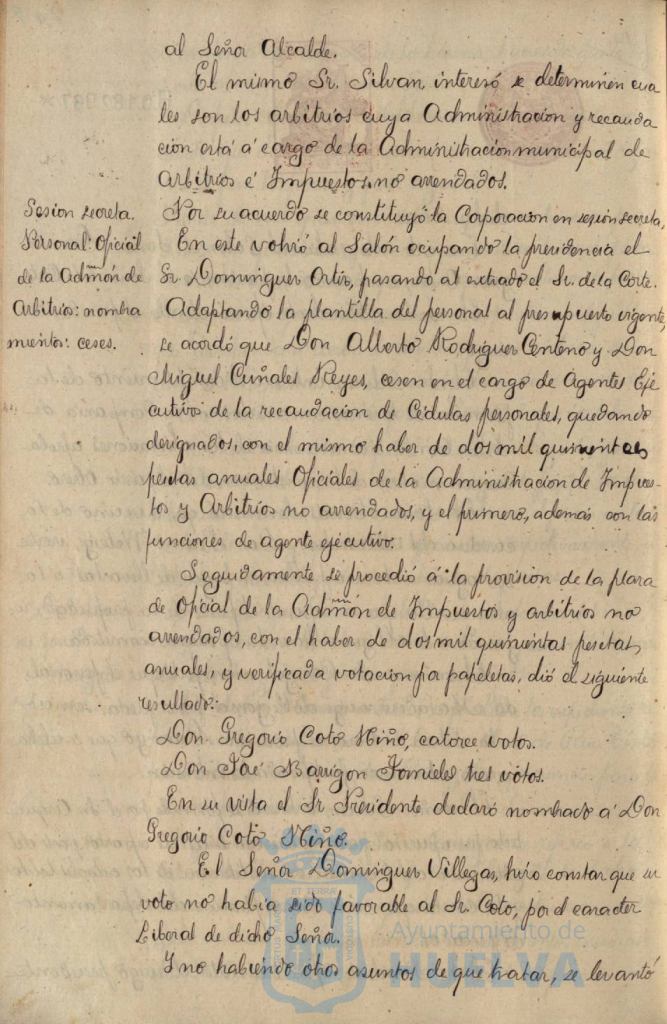 al Señor Alcalde.
El mismo Sr. Silvan, interesó se determinen cua
les son los arbitrios cuya Administracion y recauda
cion está á cargo de la Administracion municipal de
Arbitrios é Impuestos no arrendados.
Sesion secreta.
Personal: Oficial
de la Admñón de
Arbitrios: nombra
mientos: ceses.
Por su acuerdo se constituyó la Corporacion en sesion secreta,
En este volvió al Salón ocupando la presidencia el
Sr. Dominguez Ortiz, pasando al estrado el Sr. de la Corte.
Adaptando la plantilla del personal al presupuesto vigente,
se acordó que Don Alberto Rodriguez Centeno y Don
Miguel Cuñales Reyes, cesen en el cargo de Agentes Eje
cutivos de la recaudacion de Cédulas personales, quedando
designados, con el mismo haber de dos mil quinientas
pesetas anuales Oficiales de la Administracion de Impues-
tos y Arbitrios no arrendados, y el primero, además con las
funciones de agente ejecutivo.
Seguidamente se procedió á la provision de la plaza
de Oficial de la Admñón de Impuestos y arbitrios no
arrendados, con el haber de dos mil quinientas pesetas,
anuales, y verificada votacion por papeletas, dió el siguiente
resultado:
Don Gregorio Coto Niño, catorce votos.
Don José Barrigon Fornieles tres votos.
En su vista el Sr Presidente declaró nombrado á Don
Gregorio Coto Niño.
El Señor Dominguez Villegas, hizo constar que su
voto no habia sido favorable al Sr. Coto, por el caracter
Liberal de dicho Señor.
Y no habiendo otros asuntos de que tratar, se levantó
Ayuntamiento de
HUELVA